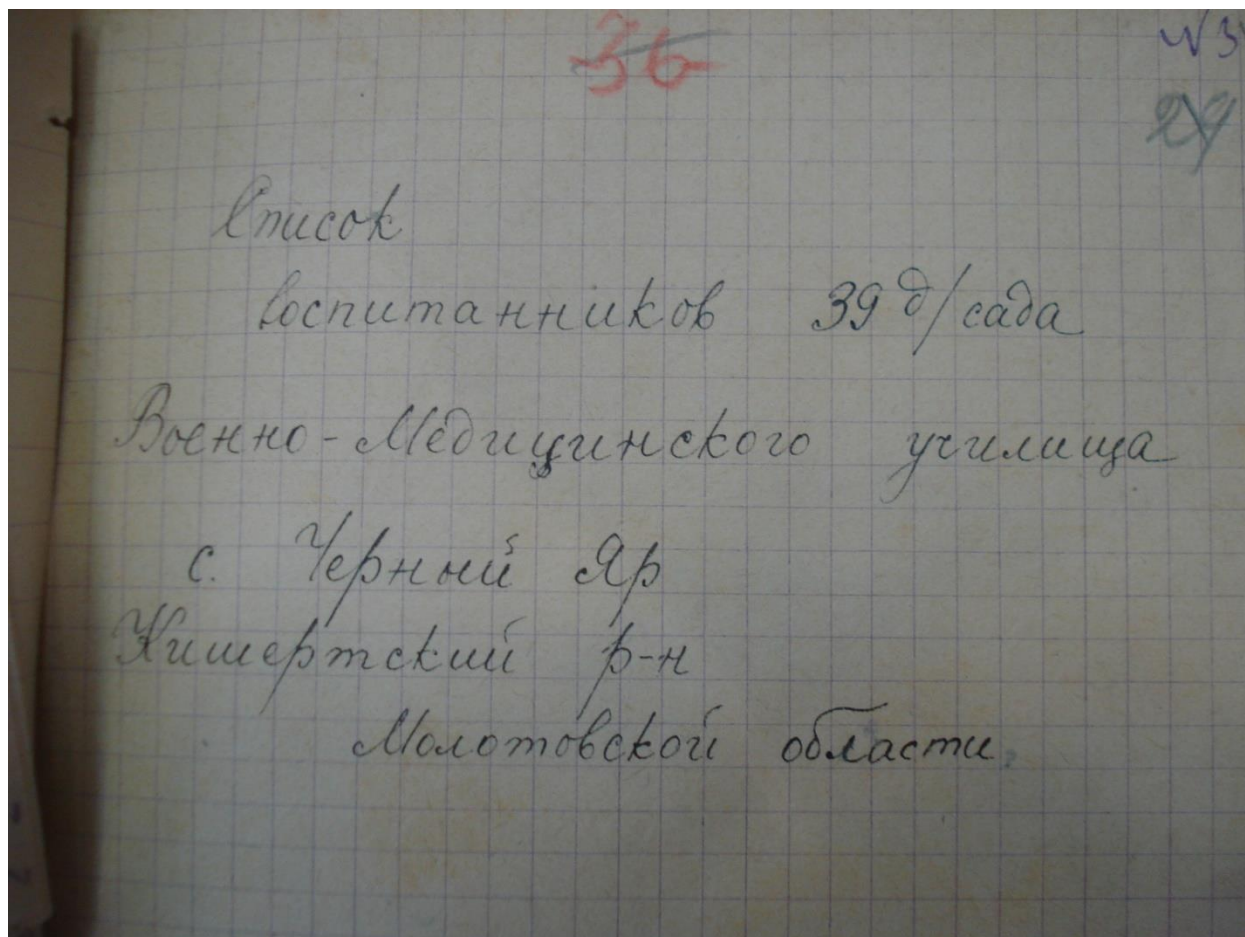 36
29
Список
воспитанников 39 д/сада
Военно-Медицинского училища
с. Черный Яр
Кишертский р-н
Молотовской области